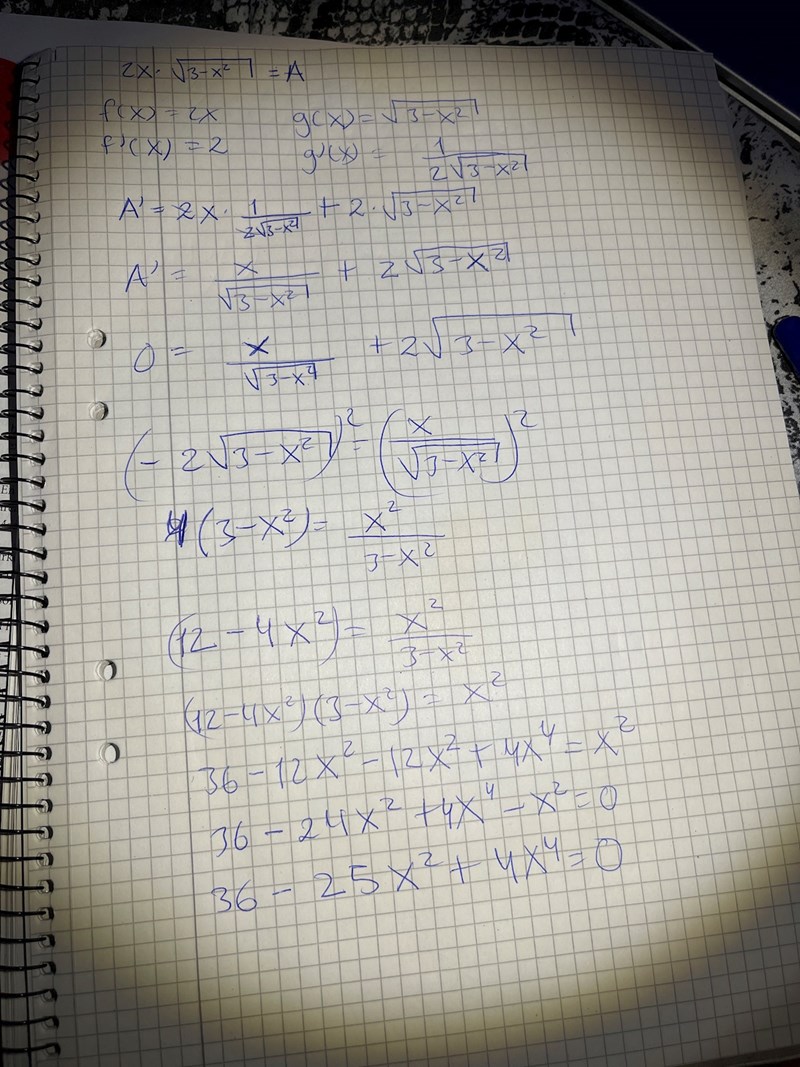 2x · √(3-x²) = A
f(x) = 2x g(x) = √(3-x²)
f'(x) = 2 g'(x) = 1/(2√(3-x²))
A' = 2x · 1/(2√(3-x²)) + 2 · √(3-x²)
A' = x/√(3-x²) + 2√(3-x²)
0 = x/√(3-x²) + 2√(3-x²)
(- 2√(3-x²))² = (x/√(3-x²))²
4(3-x²) = x²/(3-x²)
(12 - 4x²) = x²/(3-x²)
(12-4x²)(3-x²) = x²
36 - 12x² - 12x² + 4x⁴ = x²
36 - 24x² + 4x⁴ - x² = 0
36 - 25x² + 4x⁴ = 0